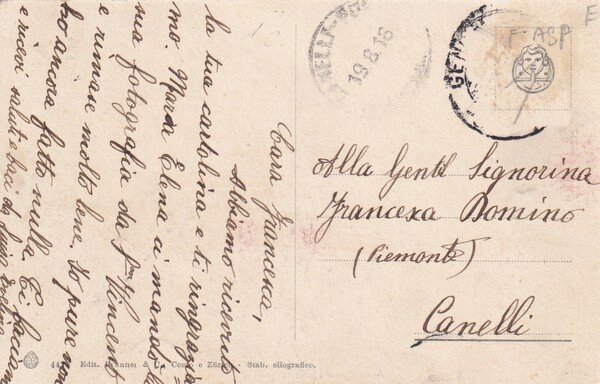 Cara Francesca,
Abbiamo ricevuto
la tua cartolina e ti ringrazia
mo. Maria Elena ci mandò la
sua fotografia da S. Vincenzo
e rimase molto bene. Io pure non
ho ancora fatto nulla. Ci facciamo
e ricevi saluti e baci da
CANELLI
19.8.16
GENOVA
F-ASP
E
Alla Gentil Signorina
Francesca Domino
(Piemonte)
Canelli
Edit. Brunner & C. Como e Zürich Stab. eliografico.